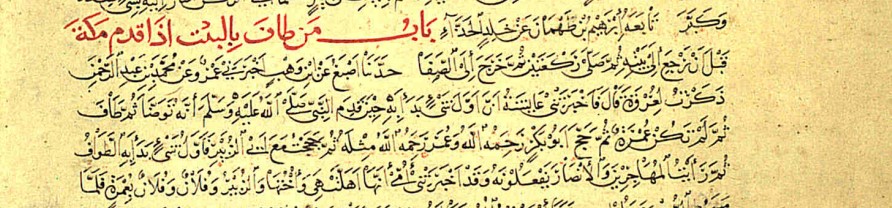 وكبر تابعه إبرهيم بن طهمان عن خلد الحذاء باب من طاف بالبيت اذا قدم مكة
قبل ان يرجع إلى بيته ثم صلى ركعتين ثم خرج إلى الصفا حدثنا اصبغ عن ابن وهب اخبرني عمرو عن محمد بن عبد الرحمن
ذكرت لعروة قال فاخبرتني عايشة ان اول شيء بدأ به حين قدم النبي صلى الله عليه وسلم أنه توضأ ثم طاف
ثم لم تكن عمرة ثم حج ابو بكر رحمه الله وعمر رحمه الله مثله ثم حججت مع ابي الزبير فأول شيء بدأ به الطواف
ثم رأيت المهاجرين والأنصار يفعلونه وقد اخبرتني أمي أنها اهلت هي وأختها والزبير وفلان وفلان بعمرة فلما